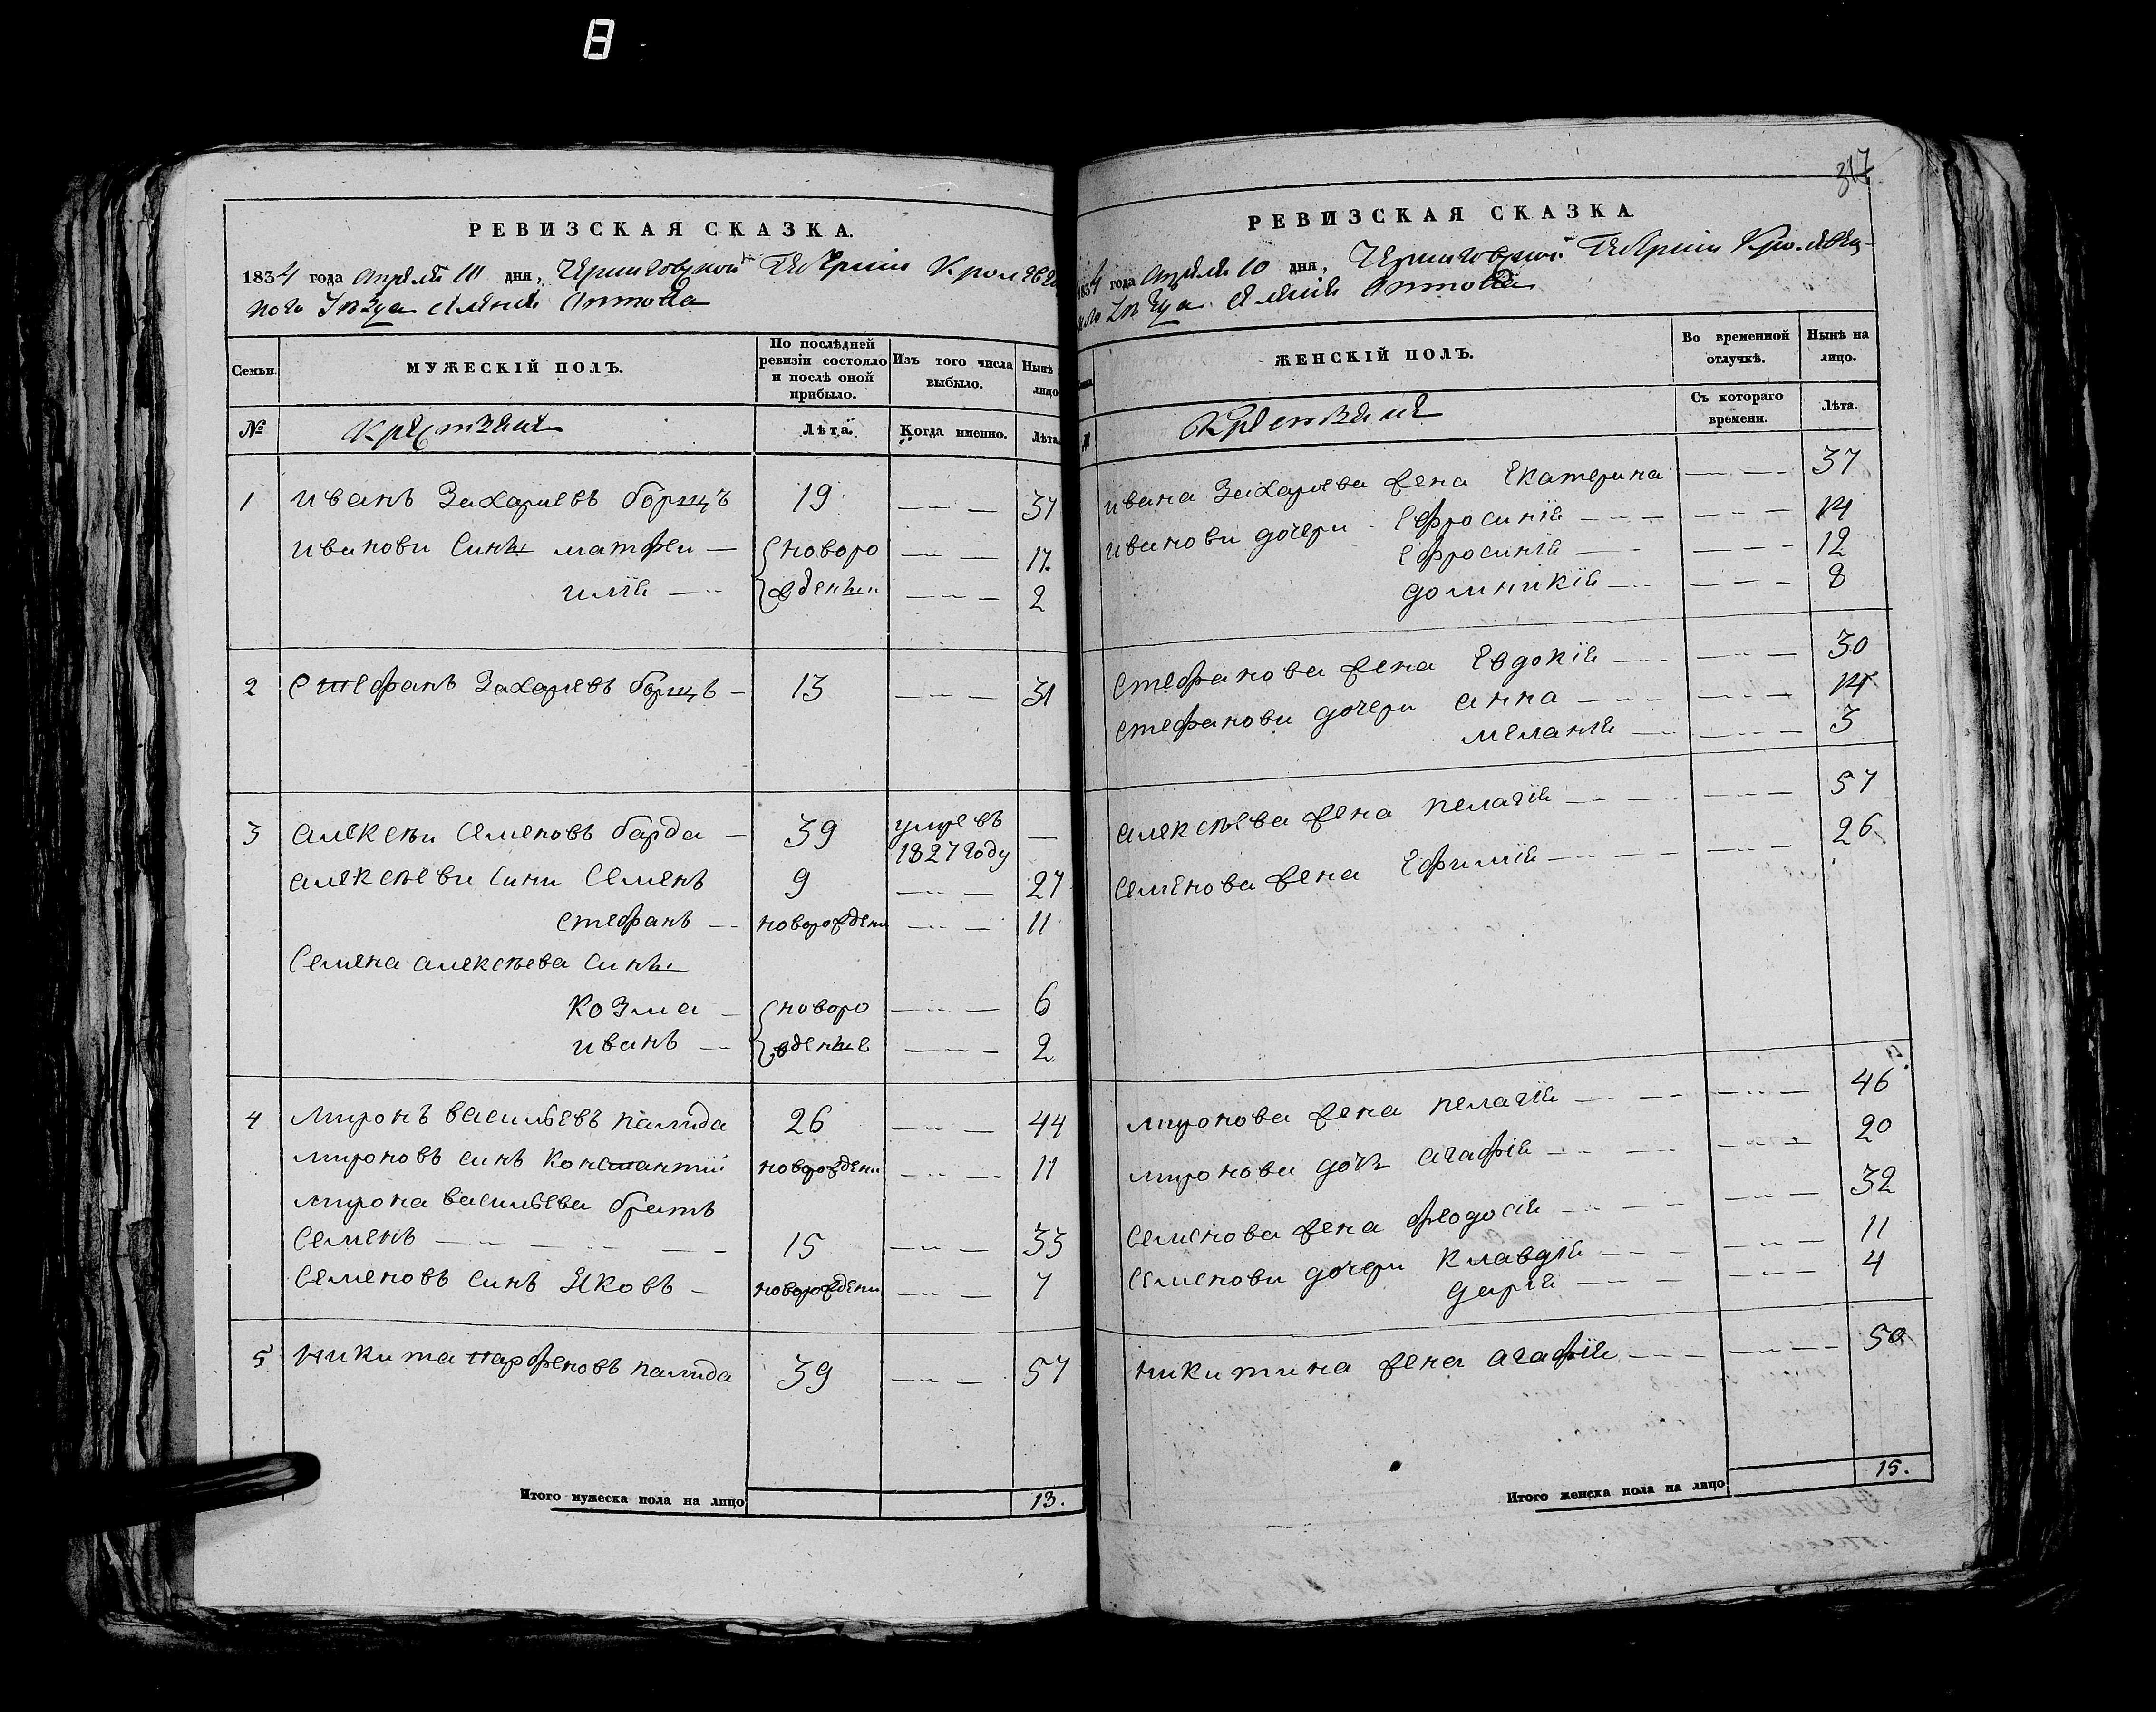 8
РЕВИЗСКАЯ СКАЗКА.
1834 года Апреля 10 дня, Черниговской Губернии Кролевец
кого уезда
Семьи.
МУЖЕСКІЙ ПОЛЪ.
По послѣдней ревизіи состояло и послѣ оной прибыло.
Изъ того числа выбыло.
Нынѣ лицо
№
Крестьяне
Лѣта.
Когда именно.
Лѣта.
1 Иванъ Захариевъ Борщъ 19 — 37
Иванови сины Матфеи — новоро — 17.
Илія — жденыи — 2
2 Стефанъ Захариевъ Борщъ — 13 — 31
3 Алексѣи Семеновъ Барда — 39 умре въ 1827 году —
Алексѣеви сини Семенъ 9 — 27
Стефанъ — новорождени — 11
Семена Алексѣева сины
Козма — новоро — 6
Иванъ — жденые — 2
4 Миронъ Васильевъ 26 — 44
Мироновъ синъ Константій новорождени — 11
Мирона Васильева братъ
Семенъ — 15 — 33
Семеновъ синъ Яковъ — новорождени — 7
5 Никита Парфеновъ 39 — 57
Итого мужеска пола на лицо 13.
317
РЕВИЗСКАЯ СКАЗКА.
1834 года Апреля 10 дня, Черниговской Губернии Кролевец-
кого уезда
ЖЕНСКІЙ ПОЛЪ.
Во временной отлучкѣ.
Нынѣ на лицо.
№
Крестьяне
Съ котораго времени.
Лѣта.
Ивана Захариева жена Екатерина — 37
Иванови дочери Ефросинія — 14
Ефросинія — 12
Домникія — 8
Стефанова жена Евдокія — 30
Стефанови дочери Анна — 14
Меланія — 3
Алексѣева жена Пелагія — 57
Семенова жена Ефимія — 26
Миронова жена Пелагія — 46
Миронови дочь Агафія — 20
Семенова жена Феодосія — 32
Семенови дочери Клавдія — 11
Дарія — 4
Никитина жена Агафія — 50
Итого женска пола на лицо 15.